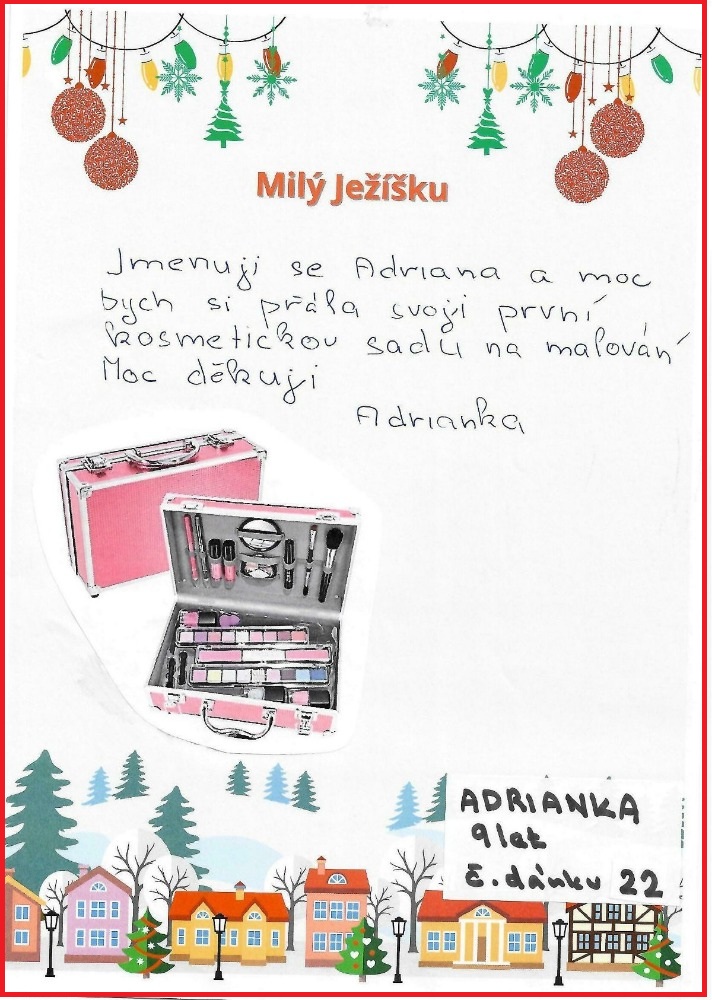 Milý Ježíšku
Jmenuji se Adriana a moc
bych si přála svoji první
kosmetickou sadu na malování
Moc děkuji
Adrianka
ADRIANKA
9 let
č. dárku 22